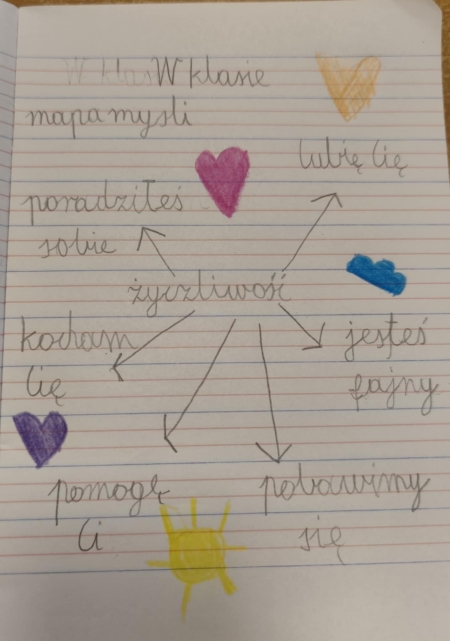 W klasie
mapa mysli
lubię Cię
poradziłeś
sobie
życzliwość
kocham
Cię
jesteś
fajny
pomogę
Ci
pobawimy
się